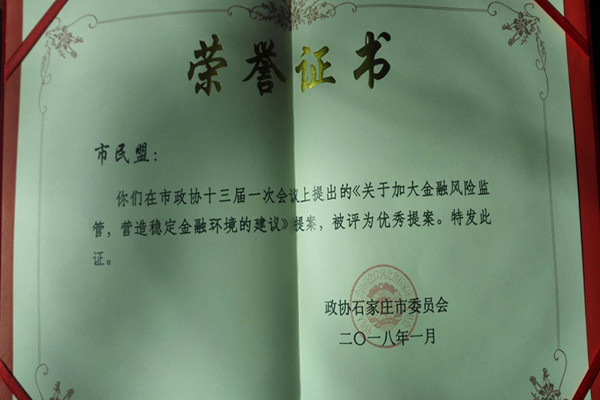 荣誉证书
市民盟：
你们在市政协十三届一次会议上提出的《关于加大金融风险监
管，营造稳定金融环境的建议》提案，被评为优秀提案。特发此
证。
政协石家庄市委员会
二〇一八年一月